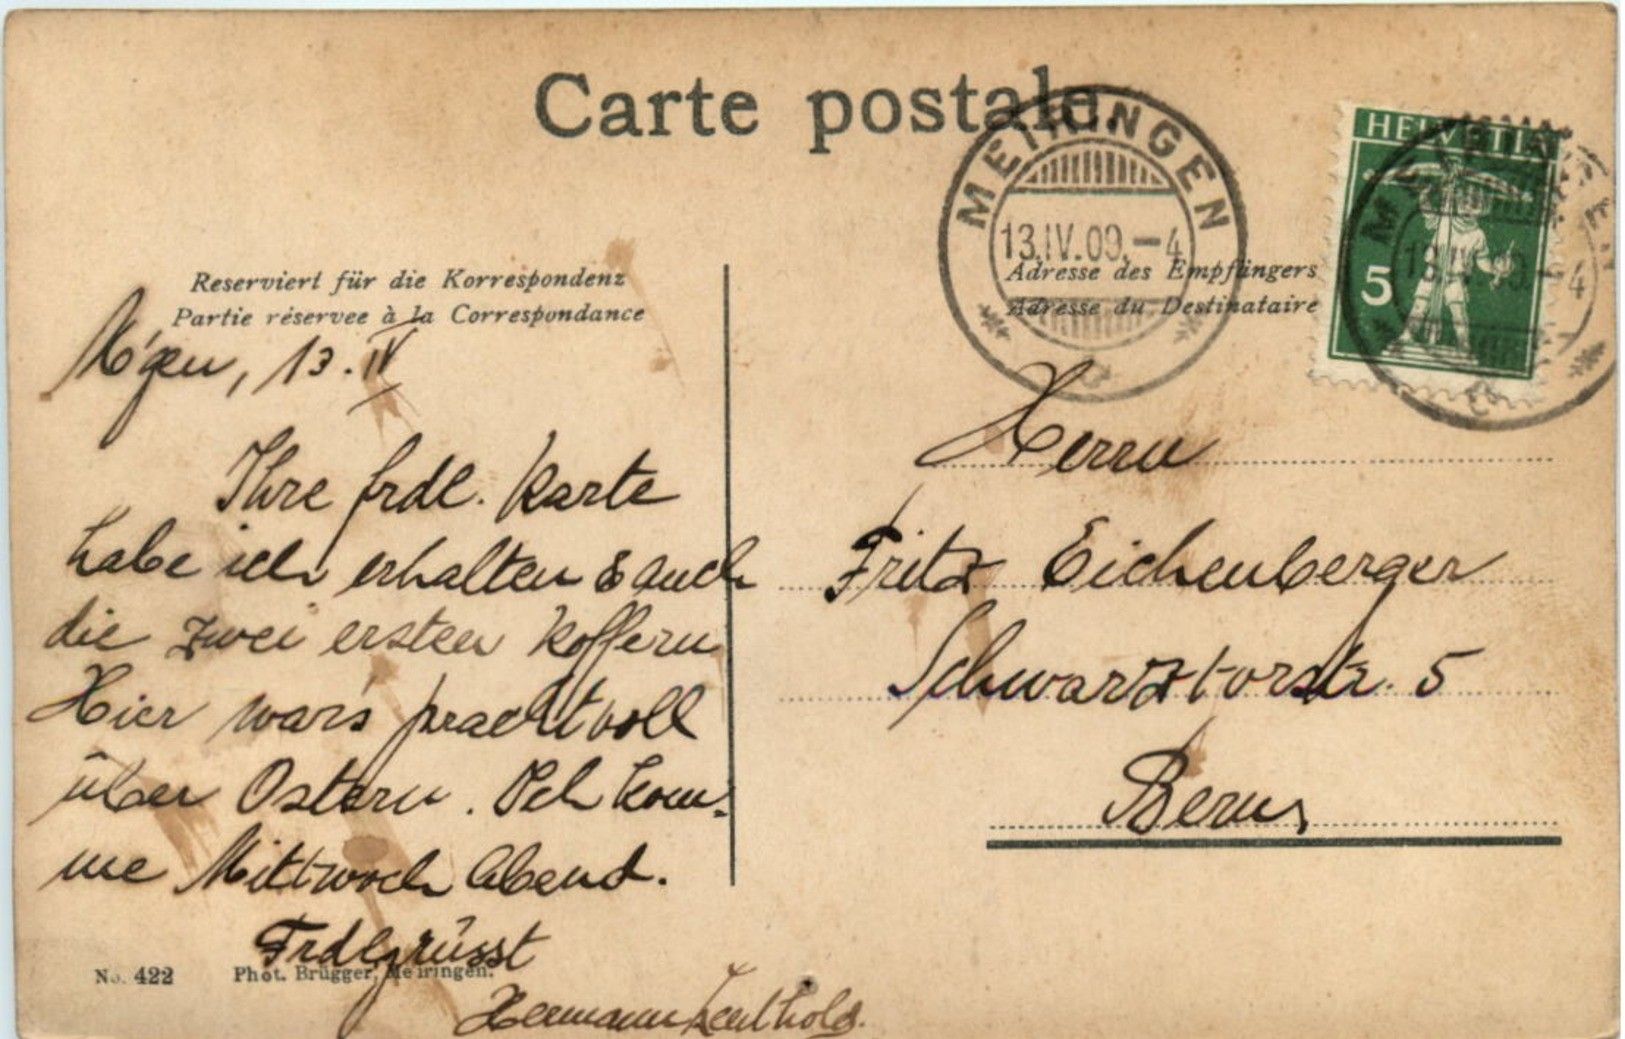 Carte postale.
MEIRINGEN
13.IV.09.-4
HELVETIA
5
MEIRINGEN
13.IV.09.-4
Reserviert für die Korrespondenz
Partie réservee à la Correspondance
Adresse des Empfängers
Adresse du Destinataire
M'gen, 13. IV
Ihre frdl. Karte
habe ich erhalten & auch
die zwei ersten Koffern
Hier war's prachtvoll
über Ostern. Ich kom-
me Mittwoch Abend.
Frdlgrüsst
Hermann Leuthold.
Herrn
Fritz Eichenberger
Schwarztorstr. 5
Bern
No. 422 Phot. Brügger, Meiringen.